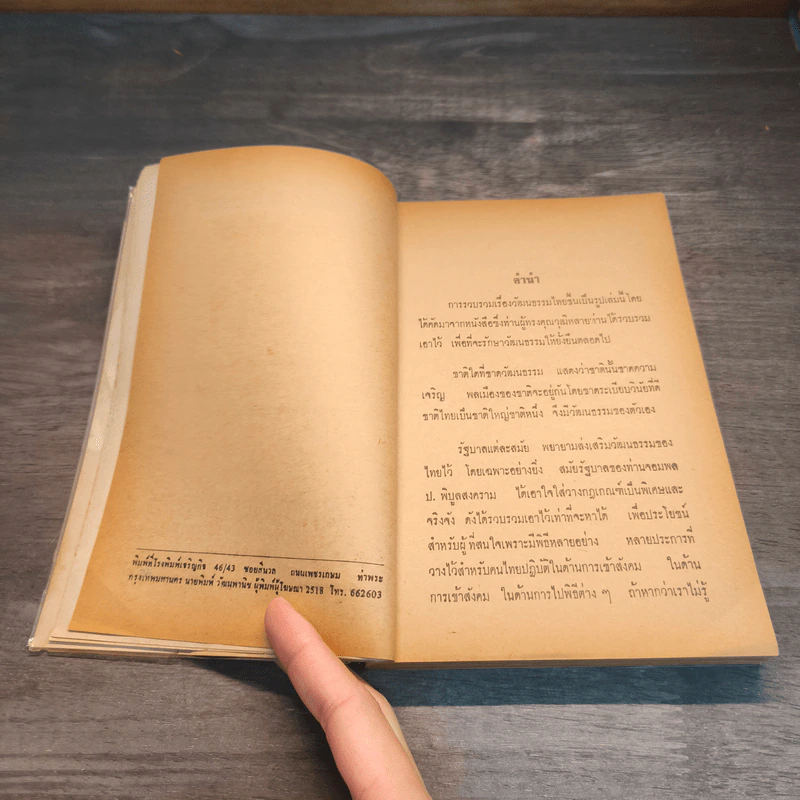 พิมพ์ที่โรงพิมพ์เจริญกิจ 46/43 ซอยสีนวล ถนนเพชรเกษม ท่าพระ
กรุงเทพมหานคร นายพิมพ์ วัฒนพานิช ผู้พิมพ์ผู้โฆษณา 2518 โทร. 662603
คำนำ
การรวบรวมเรื่องวัฒนธรรมไทยขึ้นเป็นรูปเล่มนี้ โดย
ได้คัดมาจากหนังสือซึ่งท่านผู้ทรงคุณวุฒิหลายท่านได้รวบรวม
เอาไว้ เพื่อที่จะรักษาวัฒนธรรมให้ยั่งยืนตลอดไป
ชาติใดที่ขาดวัฒนธรรม แสดงว่าชาตินั้นขาดความ
เจริญ พลเมืองของชาติจะอยู่กันโดยขาดระเบียบวินัยที่ดี
ชาติไทยเป็นชาติใหญ่ชาติหนึ่ง จึงมีวัฒนธรรมของตัวเอง
รัฐบาลแต่ละสมัย พยายามส่งเสริมวัฒนธรรมของ
ไทยไว้ โดยเฉพาะอย่างยิ่ง สมัยรัฐบาลของท่านจอมพล
ป. พิบูลสงคราม ได้เอาใจใส่วางกฎเกณฑ์เป็นพิเศษและ
จริงจัง ดังได้รวบรวมเอาไว้เท่าที่จะหาได้ เพื่อประโยชน์
สำหรับผู้ที่สนใจเพราะมีพิธีหลายอย่าง หลายประการที่
วางไว้สำหรับคนไทยปฏิบัติในด้านการเข้าสังคม ในด้าน
การเข้าสังคม ในด้านการไปพิธีต่าง ๆ ถ้าหากว่าเราไม่รู้